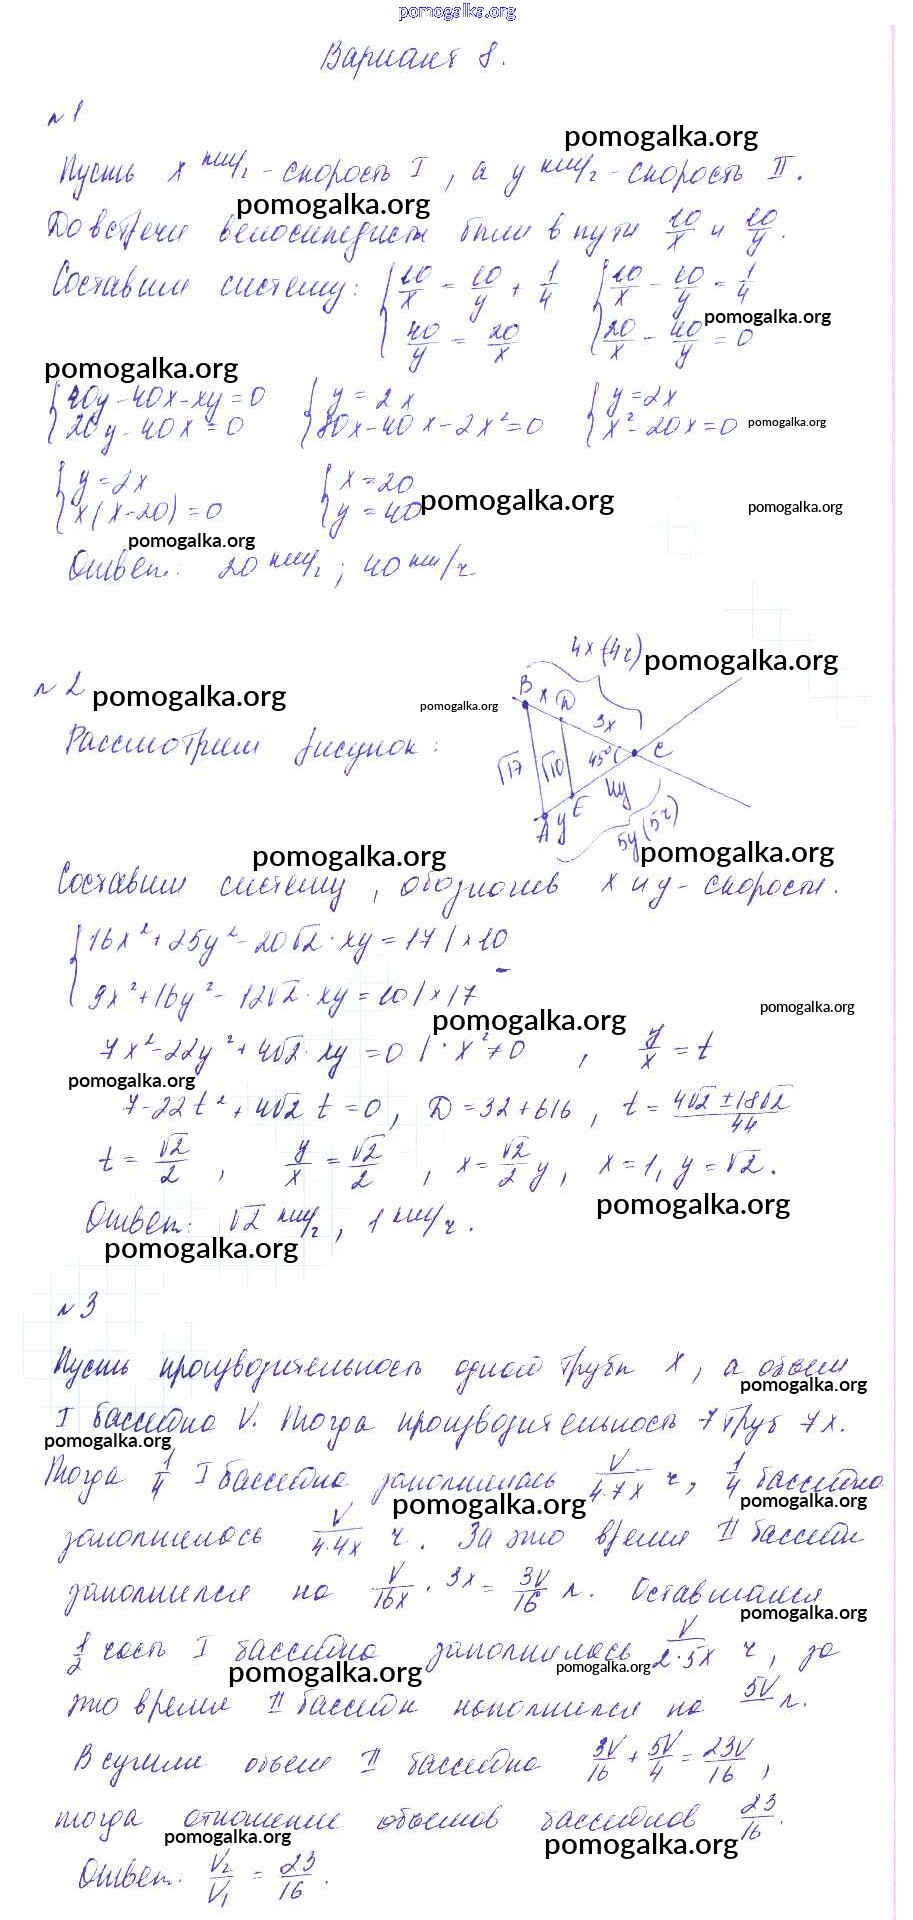 pomogalka.org
Вариант 8.
№1
pomogalka.org
Пусть x км/ч - скорость I, а y км/ч - скорость II.
pomogalka.org
До встречи велосипедисты были в пути 10/x и 10/y.
Составим систему: { 10/x = 10/y + 1/4 { 10/x - 10/y = 1/4
pomogalka.org
40/y = 20/x 20/x - 40/y = 0
pomogalka.org
{ 40y - 40x - xy = 0 { y = 2x { y = 2x
20y - 40x = 0 80x - 40x - 2x² = 0 x² - 20x = 0 pomogalka.org
{ y = 2x { x = 20
x(x - 20) = 0 y = 40 pomogalka.org pomogalka.org
pomogalka.org
Ответ: 20 км/ч; 40 км/ч
4x (4ч) pomogalka.org
№2 pomogalka.org
pomogalka.org
B x D 3x
Рассмотрим рисунок:
√17 √10 45° C
4y
A y E
5y (5ч)
pomogalka.org pomogalka.org
Составим систему, обозначив x и y - скорости.
{ 16x² + 25y² - 20√2 · xy = 17 | × 10
9x² + 16y² - 12√2 · xy = 10 | × 17
pomogalka.org pomogalka.org
7x² - 22y² + 4√2 · xy = 0 | · x² ≠ 0, y/x = t
pomogalka.org
7 - 22t² + 4√2 t = 0, D = 32 + 616, t = 4√2 ± 18√2/44
t = √2/2, y/x = √2/2, x = √2/2 y, x = 1, y = √2.
pomogalka.org
Ответ: √2 км/ч, 1 км/ч.
pomogalka.org
№3
Пусть производительность одной трубы x, а объем
pomogalka.org
I бассейна V. Тогда производительность 7 труб 7x.
pomogalka.org
Тогда 1/4 I бассейна заполнилась V/4·7x ч, 1/4 бассейна
pomogalka.org pomogalka.org
заполнилось V/4·4x ч. За это время II бассейн
заполнился на V/16x · 3x = 3V/16 л. Оставшаяся
pomogalka.org
1/2 часть I бассейна заполнилась V/2·5x ч, за
pomogalka.org pomogalka.org
это время II бассейн наполнился на 5V л.
В сумме объем II бассейна 3V/16 + 5V/4 = 23V/16,
тогда отношение объемов бассейнов 23/16.
pomogalka.org pomogalka.org
Ответ: V₂/V₁ = 23/16.